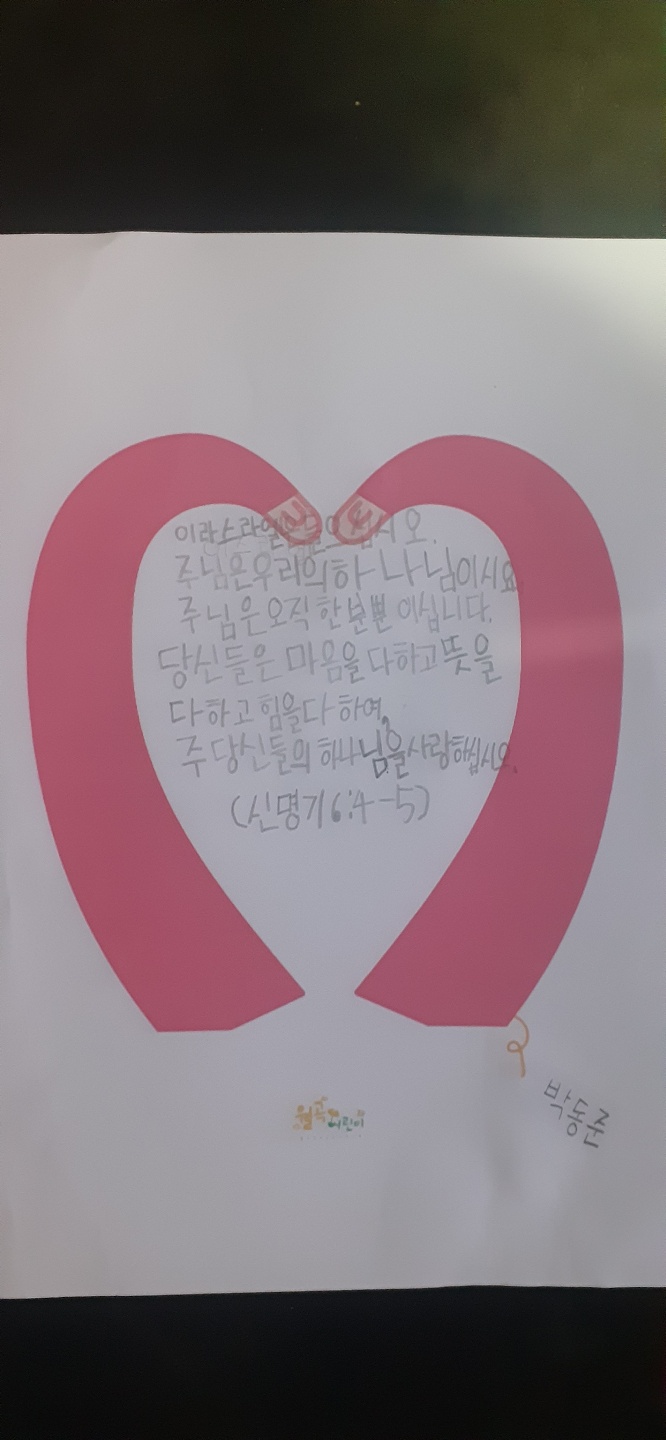 이라스라엘은들으십시오.
주님은우리의하나님이시요
주님은오직한분뿐이십니다.
당신들은 마음을 다하고뜻을
다하고힘을다하여,
주 당신들의 하나님을사랑하십시오.
(신명기6:4-5)
월곡 어린이
박동준